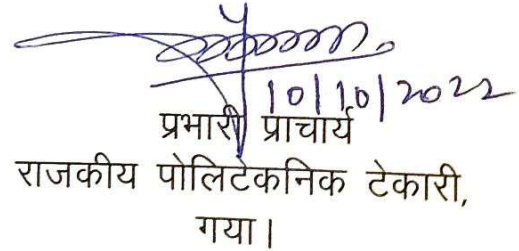 10/10/2022
प्रभारी प्राचार्य
राजकीय पोलिटेकनिक टेकारी,
गया।